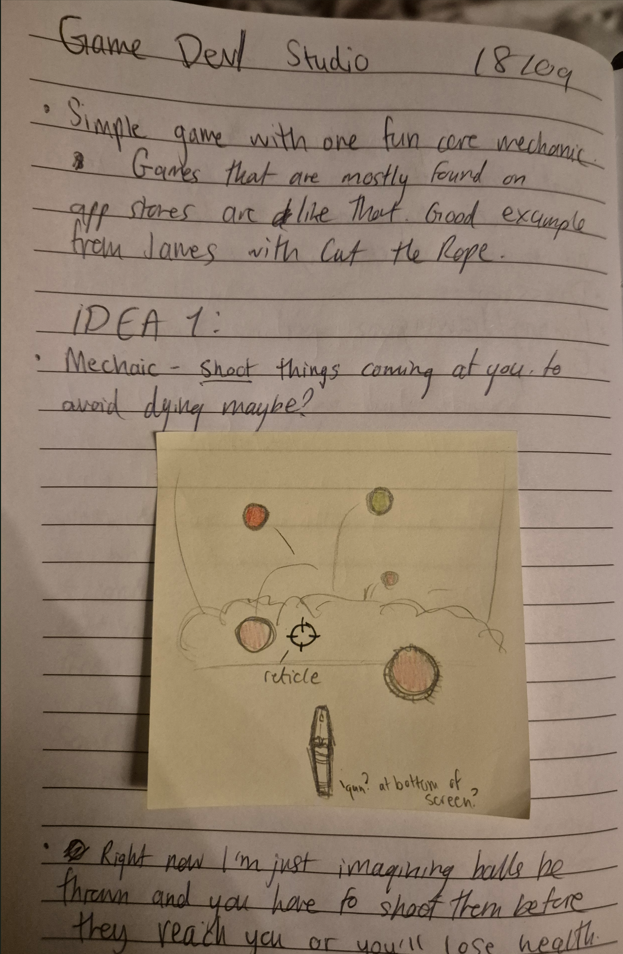 Game Dev Studio 18 Log
• Simple game with one fun core mechanic.
Games that are mostly found on
app stores are like that. Good example
from James with Cut the Rope.
IDEA 1:
• Mechaic - Shoot things coming at you. to
avoid dying maybe?
reticle
'gun? at bottom of
screen?
• Right now I'm just imagining balls be
thrown and you have to shoot them before
they reach you or you'll lose health.